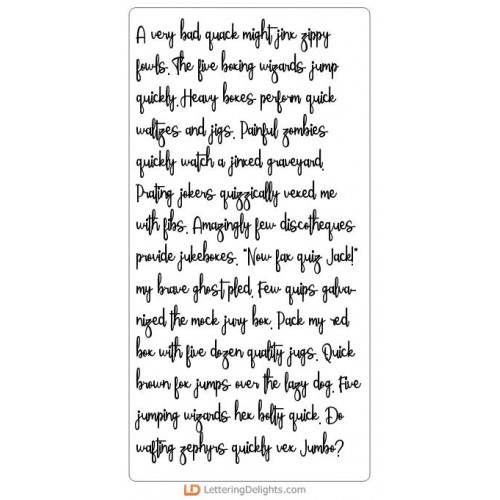 A very bad quack might jinx zippy
fowls. The five boxing wizards jump
quickly. Heavy boxes perform quick
waltzes and jigs. Painful zombies
quickly watch a jinxed graveyard.
Prating jokers quizzically vexed me
with fibs. Amazingly few discotheques
provide jukeboxes. "Now fax quiz Jack!"
my brave ghost pled. Few quips galva-
nized the mock jury box. Pack my red
box with five dozen quality jugs. Quick
brown fox jumps over the lazy dog. Five
jumping wizards hex bolty quick. Do
wafting zephyrs quickly vex Jumbo?
LD LetteringDelights.com